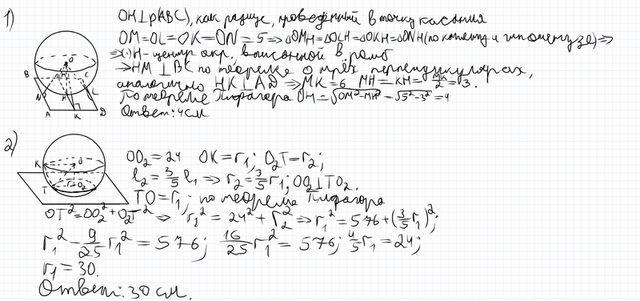 1)
OH⊥p(ABC), как радиус, проведённый в точку касания
OM=OL=OK=ON=5⇒△OMH=△OLH=△OKH=△ONH(по катету и гипотенузе)⇒
⇒(·)H-центр окр, вписанной в ромб
⇒HM⊥BC по теореме о трёх перпендикулярах,
аналогично HK⊥AD⇒MK=6 MH=KH=MK/2=3.
По теореме Пифагора OH=√OM²-MH²=√5²-3²=4
Ответ: 4см
O
B
C
M
H
N
L
A
K
D
2)
OO₂=24 OK=r₁; O₂T=r₂;
l₂=3/5 l₁⇒r₂=3/5 r₁; OO₂⊥TO₂.
TO=r₁; по теореме Пифагора
OT²=OO₂²+O₂T²⇒r₁²=24²+r₂²⇒r₁²=576+(3/5 r₁)²;
r₁²-9/25 r₁²=576; 16/25 r₁²=576; 4/5 r₁=24;
r₁=30.
Ответ: 30 см.
K
O
T
r₂
O₂